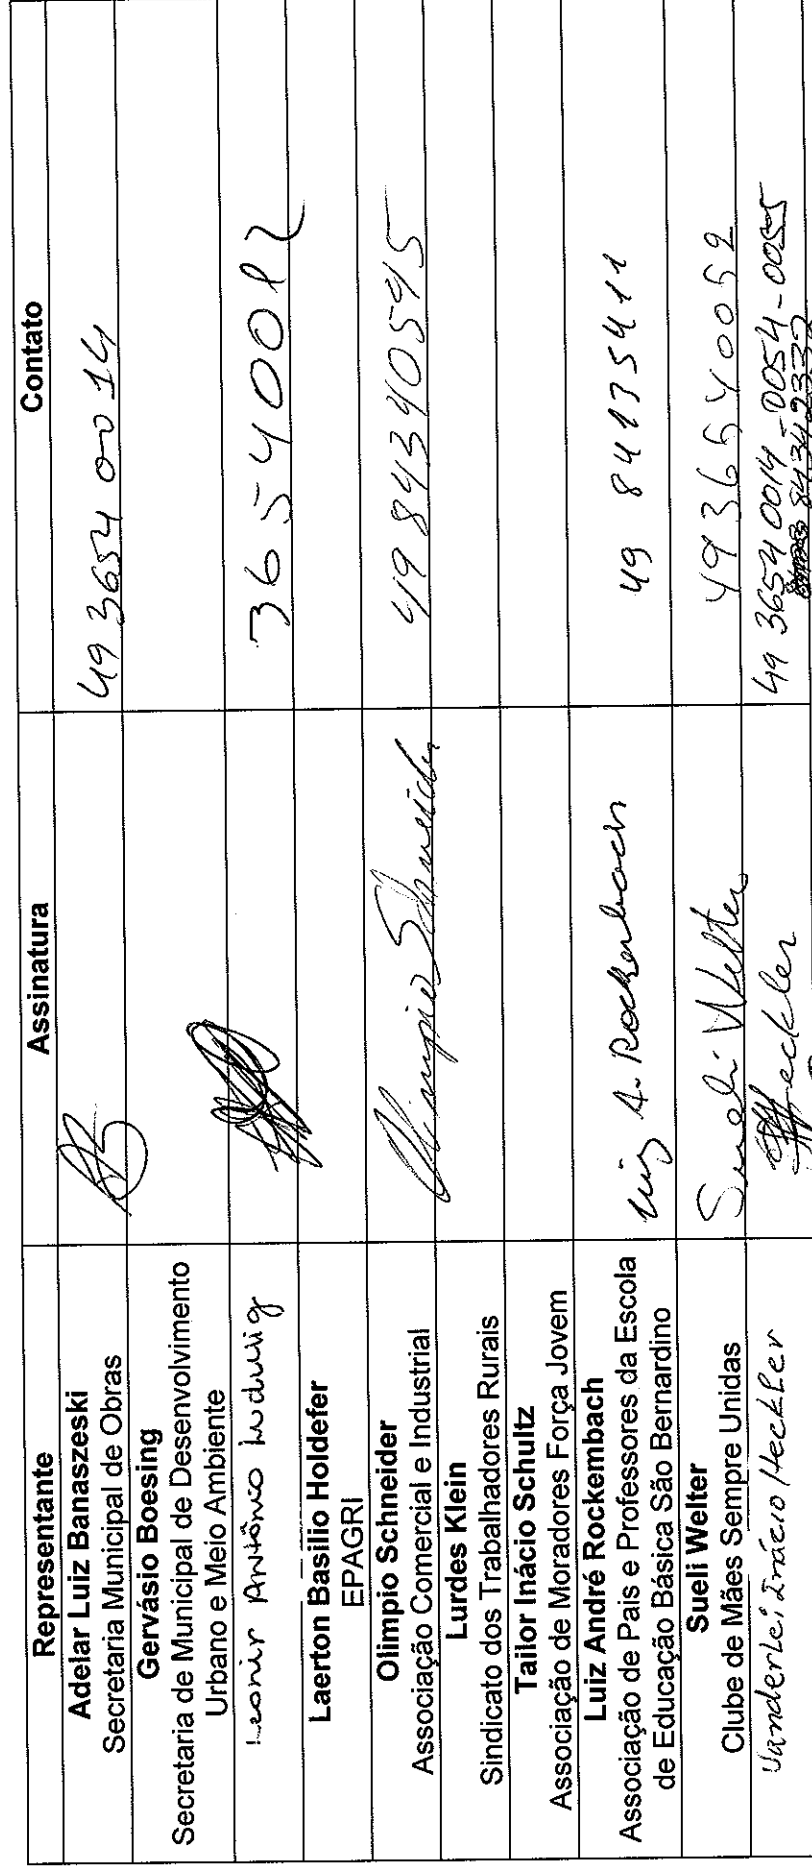 Representante Assinatura Contato
Adelar Luiz Banaszeski
Secretaria Municipal de Obras
49 3654 0014
Gervásio Boesing
Secretaria de Municipal de Desenvolvimento
Urbano e Meio Ambiente
Leonir Antônio Ludwig 3654 0012
Laerton Basilio Holdefer
EPAGRI
Olimpio Schneider
Associação Comercial e Industrial
Olimpio Schneider 49 84340545
Lurdes Klein
Sindicato dos Trabalhadores Rurais
Tailor Inácio Schultz
Associação de Moradores Força Jovem
Luiz André Rockembach
Associação de Pais e Professores da Escola
de Educação Básica São Bernardino
Luiz A. Rockenbach 49 84135411
Sueli Welter
Clube de Mães Sempre Unidas
Sueli Welter 49 3654 0052
Vanderlei Inácio Heckler Heckler 49 3654 0014 - 0054 - 0055